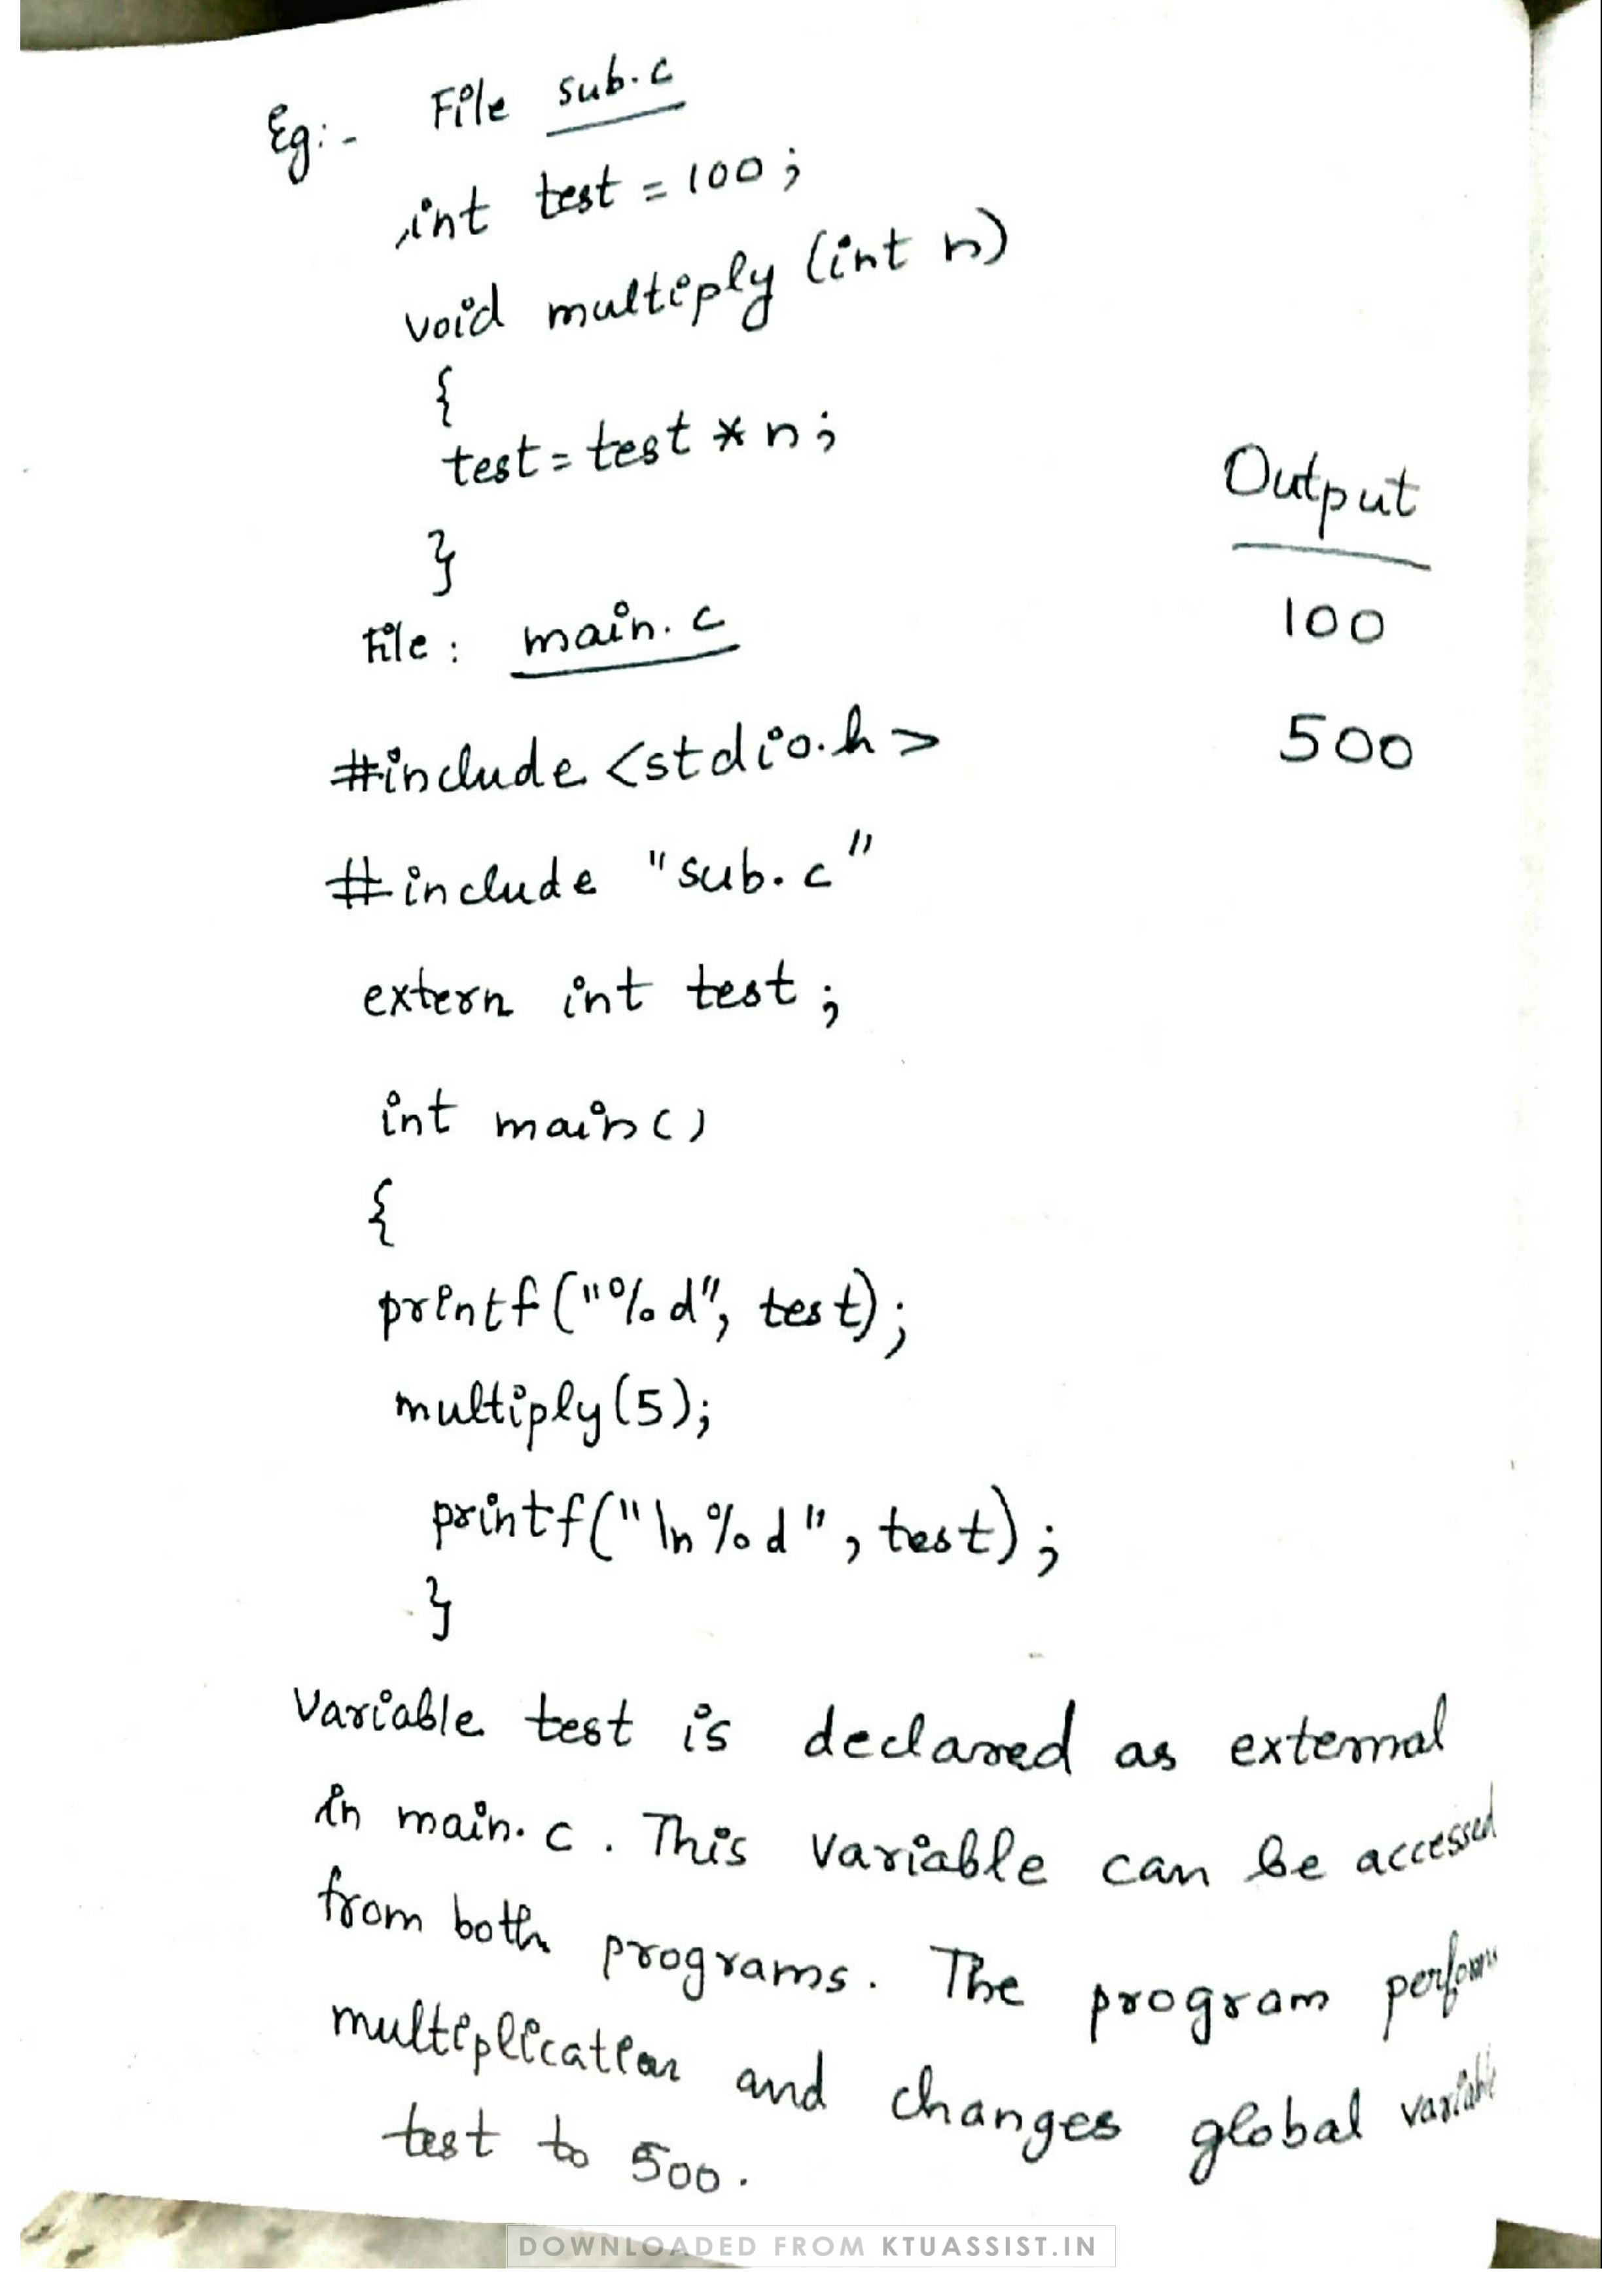 Eg:- File sub.c
int test = 100;
void multiply (int n)
{
test = test * n;
}
Output
100
500
File: main.c
#include <stdio.h>
#include "sub.c"
extern int test;
int main()
{
printf("%d", test);
multiply(5);
printf("\n%d", test);
}
Variable test is declared as external
in main.c. This variable can be accessed
from both programs. The program performs
multiplication and changes global variable
test to 500.
DOWNLOADED FROM KTUASSIST.IN